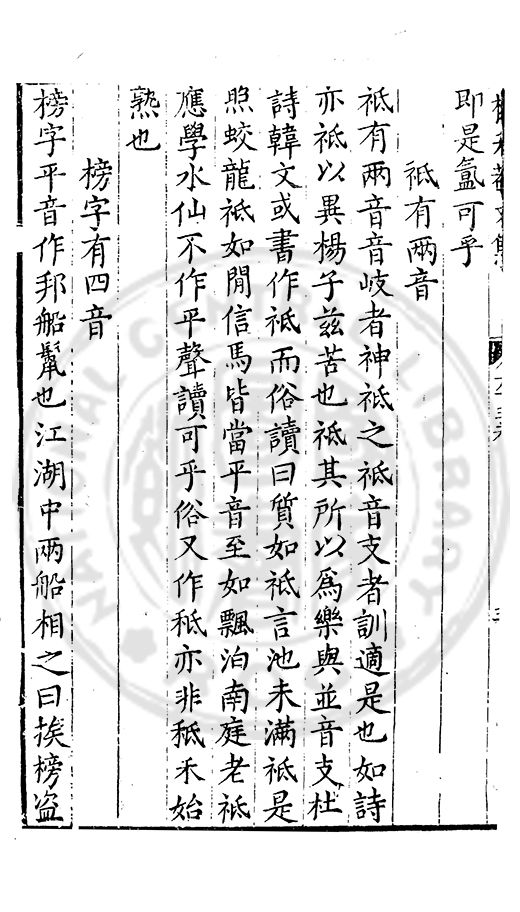 即是氳可乎
祗有兩音
祗有兩音音岐者神祗之祗音支者訓適是也如詩
亦祗以異楊子茲苦也祗其所以爲樂與並音支杜
詩韓文或書作祗而俗讀曰質如祗言池未滿祗是
照蛟龍祗如閒信馬皆當平音至如飄泊南庭老祗
應學水仙不作平聲讀可乎俗又作秪亦非秪禾始
熟也
榜字有四音
榜字平音作邦船鬣也江湖中兩船相之曰挨榜盗